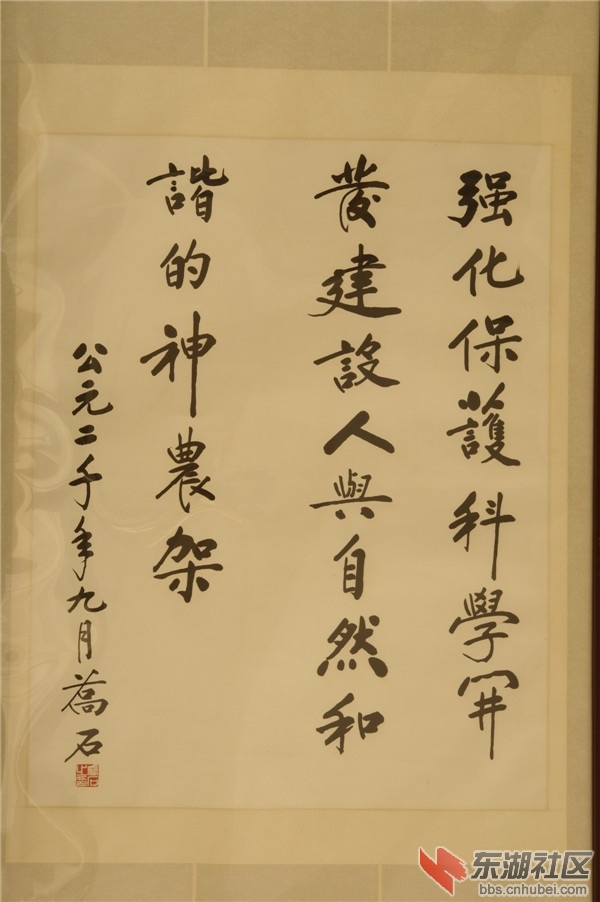 强化保護科學開
發建設人與自然和
諧的神農架
公元二千年九月喬石
东湖社区
bbs.cnhubei.com